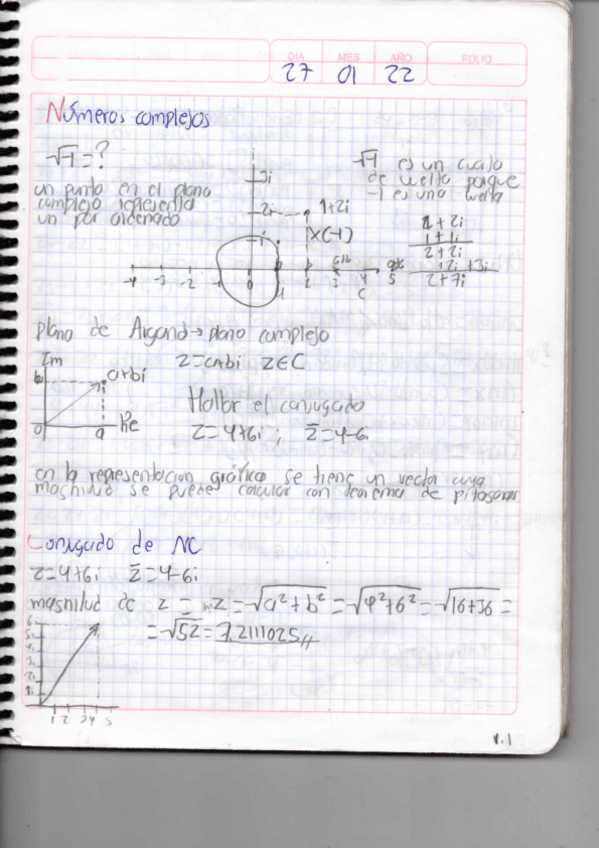 DIA MES AÑO FOLIO
27 01 22
Números complejos
√-1 = ?
un punto en el plano
complejo representa
un par ordenado
√-1 es un cuarto
de vuelta porque
-1 es una vuelta
3i
2i
1+2i
i
x(-1)
-4 -3 -2 0 1 2 3 4 5
C
1+2i
1+1i
2+2i
+2i +3i
2+7i
plano de Argand → plano complejo
Im
b a+bi
0 a Re
z=a+bi z∈C
Hallar el conjugado
z=4+6i ; z̄=4-6i
en la representacion gráfica se tiene un vector cuya
magnitud se puede calcular con teorema de pitagoras
Conjugado de NC
z=4+6i z̄=4-6i
magnitud de z = mz = √a²+b² = √4²+6² = √16+36 =
= √52 = 7.2111025
6i
5i
4i
3i
2i
1i
1 2 3 4 5
1.1